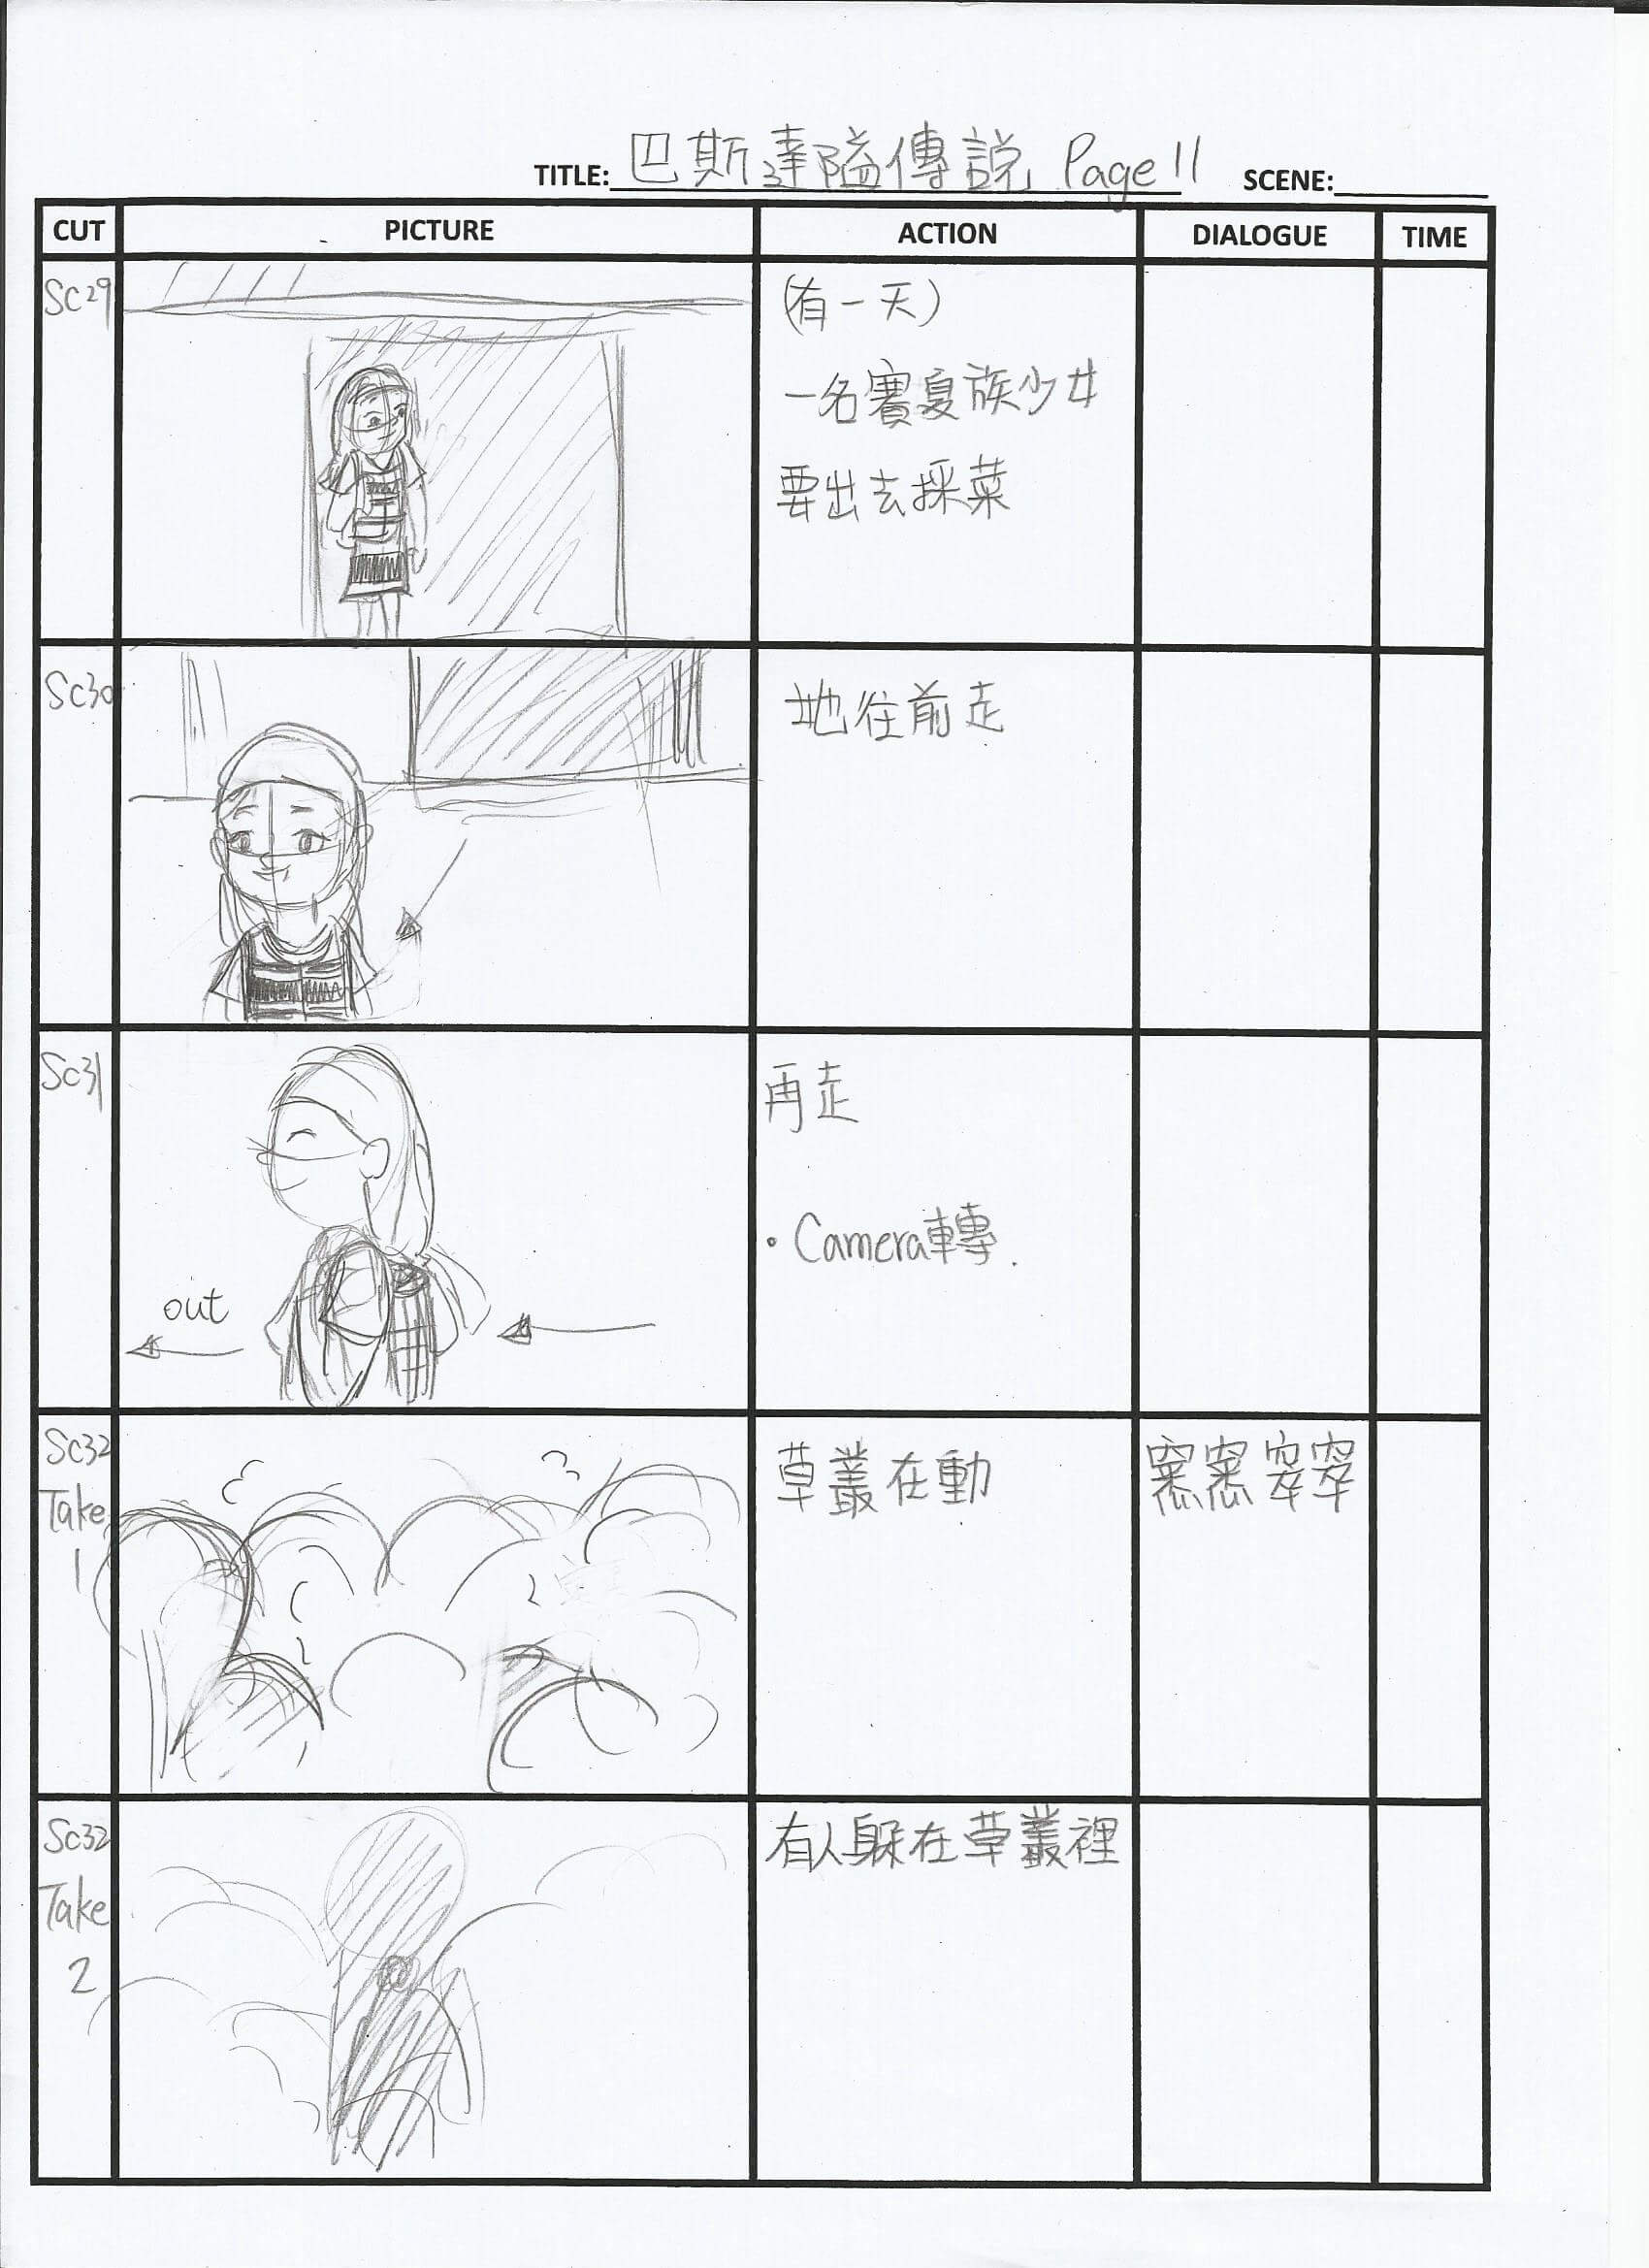 TITLE: 巴斯達隘傳說 Page 11 SCENE:
CUT PICTURE ACTION DIALOGUE TIME
Sc29
(有一天)
一名賽夏族少女
要出去採菜
Sc30
她往前走
Sc31
再走
• Camera轉.
out
Sc32
Take
1
草叢在動
窸窸窣窣
Sc32
Take
2
有人躲在草叢裡